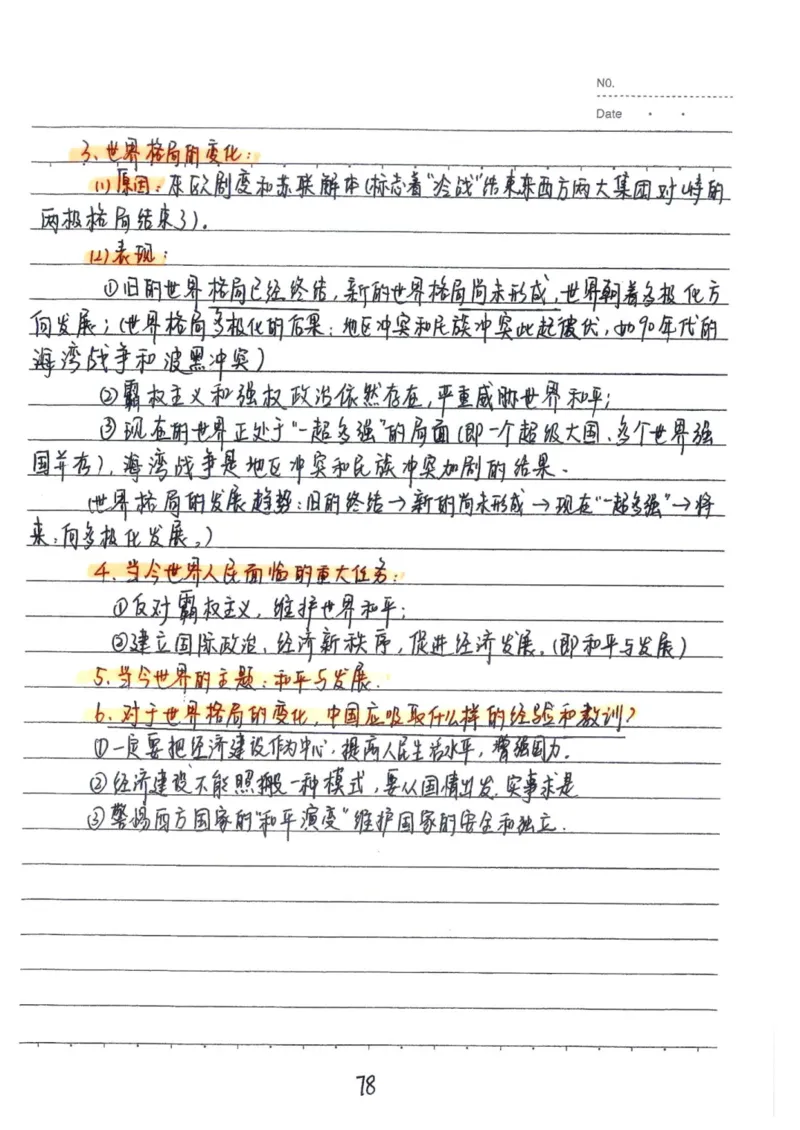 NO.
Date
3、世界格局的变化：
(1)原因：东欧剧变和苏联解体(标志着“冷战”结束东西方两大集团对峙的
两极格局结束了)。
(2)表现：
①旧的世界格局已经终结，新的世界格局尚未形成，世界朝着多极化方
向发展；(世界格局多极化的后果：地区冲突和民族冲突此起彼伏，如90年代的
海湾战争和波黑冲突)
②霸权主义和强权政治依然存在，严重威胁世界和平；
③现在的世界正处于“一超多强”的局面(即一个超级大国、多个世界强
国并存)，海湾战争是地区冲突和民族冲突加剧的结果、
(世界格局的发展趋势：旧的终结→新的尚未形成→现在“一超多强”→将
来，向多极化发展。)
4、当今世界人民面临的重大任务：
①反对霸权主义，维护世界和平；
②建立国际政治、经济新秩序，促进经济发展。(即和平与发展)
5、当今世界的主题：和平与发展.
6、对于世界格局的变化，中国应吸取什么样的经验和教训？
①一定要把经济建设作为中心，提高人民生活水平，增强国力.
②经济建设不能照搬一种模式，要从国情出发.实事求是
③警惕西方国家的“和平演变”维护国家的安全和独立.
78